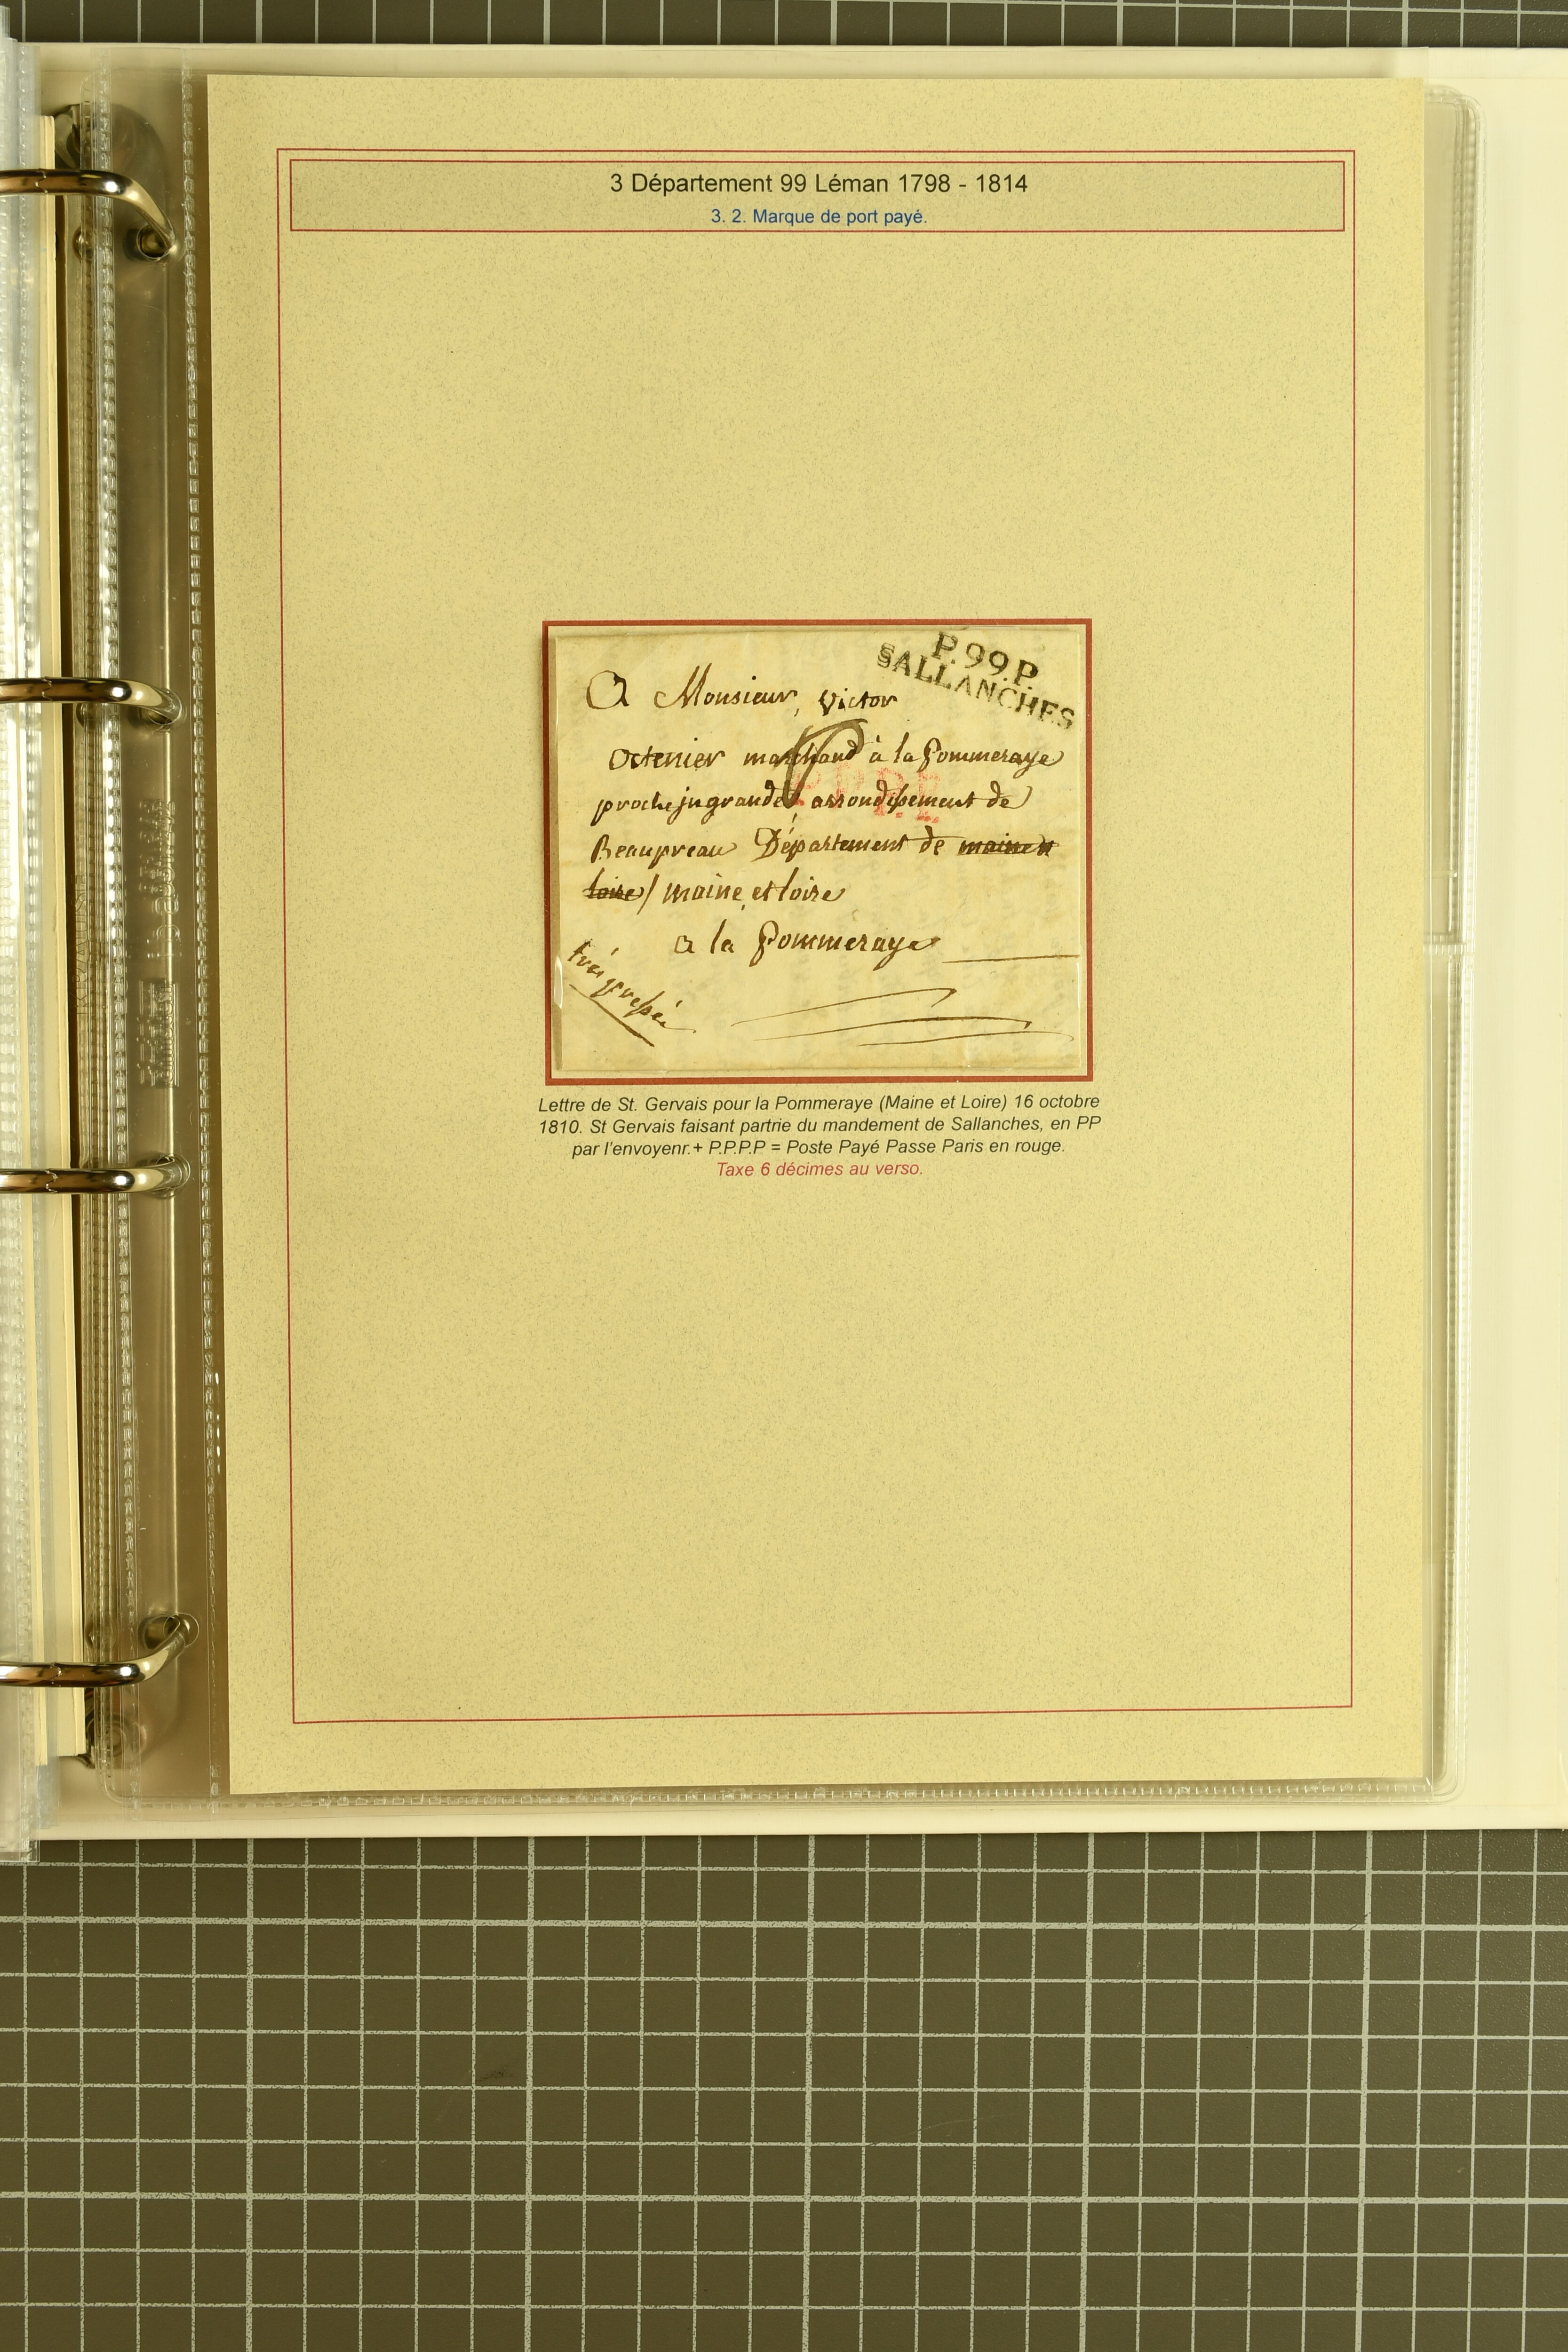 3 Département 99 Léman 1798 - 1814
3. 2. Marque de port payé.
P.99.P.
SALLANCHES
A Monsieur, Victor
octenier marchand à la Pommeraye
6
P.P.P.P.
proche ingrande, arrondissement de
Beaupreau Département de maine et
loire / maine et loire
a la Pommeraye
très pressée
Lettre de St. Gervais pour la Pommeraye (Maine et Loire) 16 octobre
1810. St Gervais faisant partrie du mandement de Sallanches, en PP
par l'envoyenr.+ P.P.P.P = Poste Payé Passe Paris en rouge.
Taxe 6 décimes au verso.